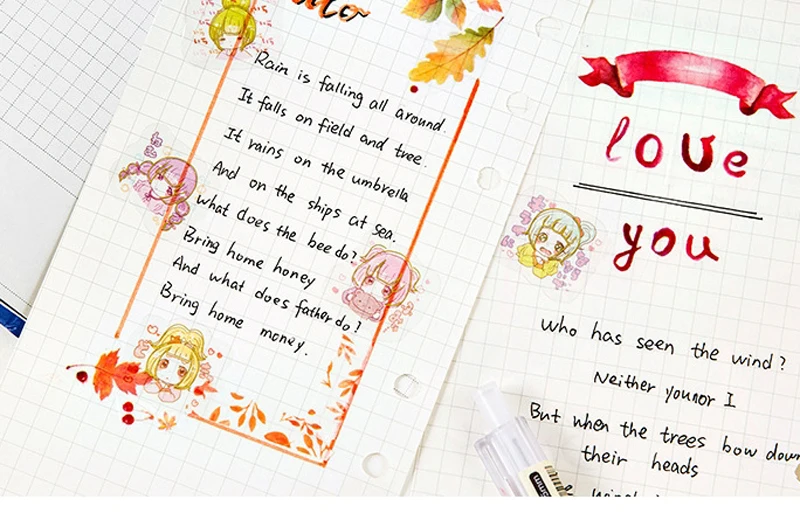 Rain is falling all around.
It falls on field and tree.
It rains on the umbrella
And on the ships at sea.
What does the bee do?
Bring home honey
And what does father do?
Bring home money.
love
you
Who has seen the wind?
Neither younor I
But when the trees bow down
their heads